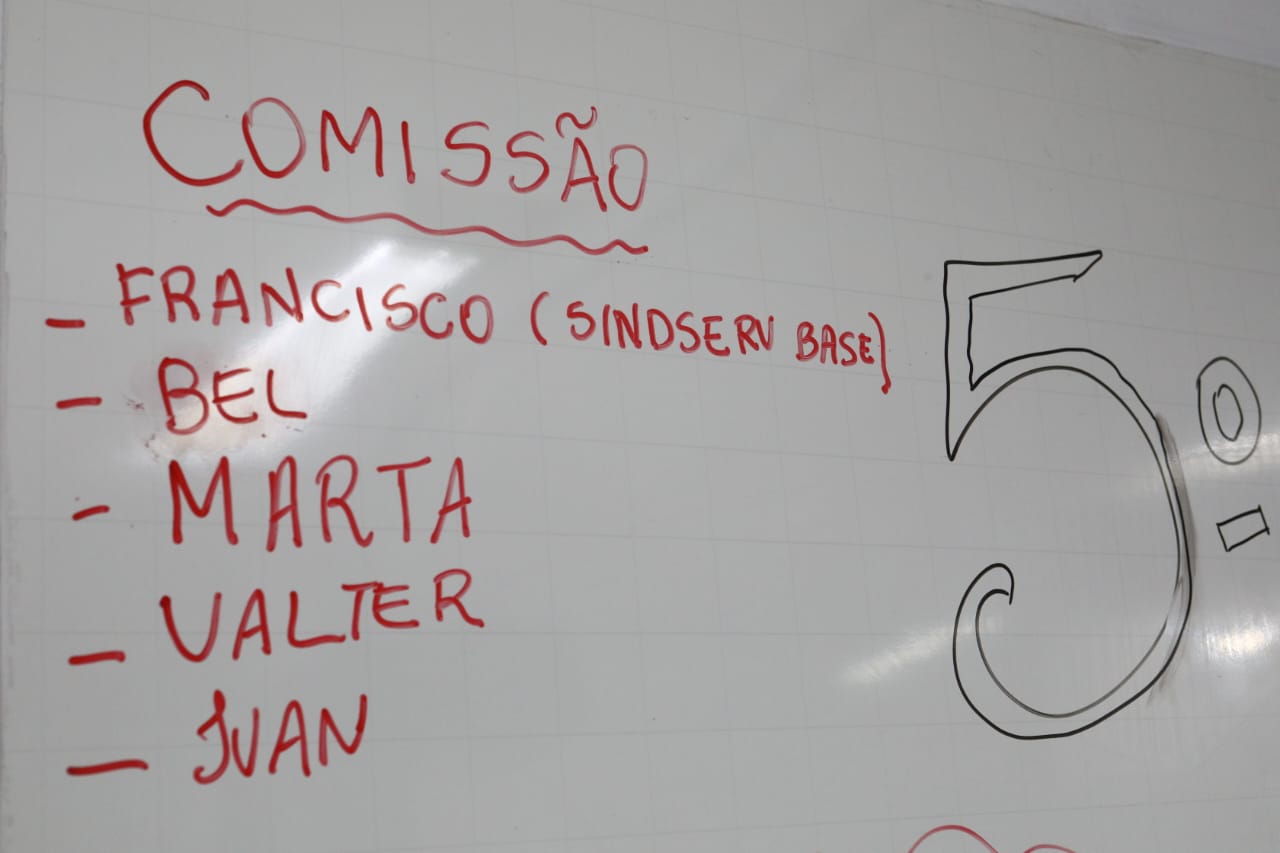 COMISSÃO
- FRANCISCO (SINDSERV BASE)
- BEL
- MARTA
- VALTER
- JUAN
5º